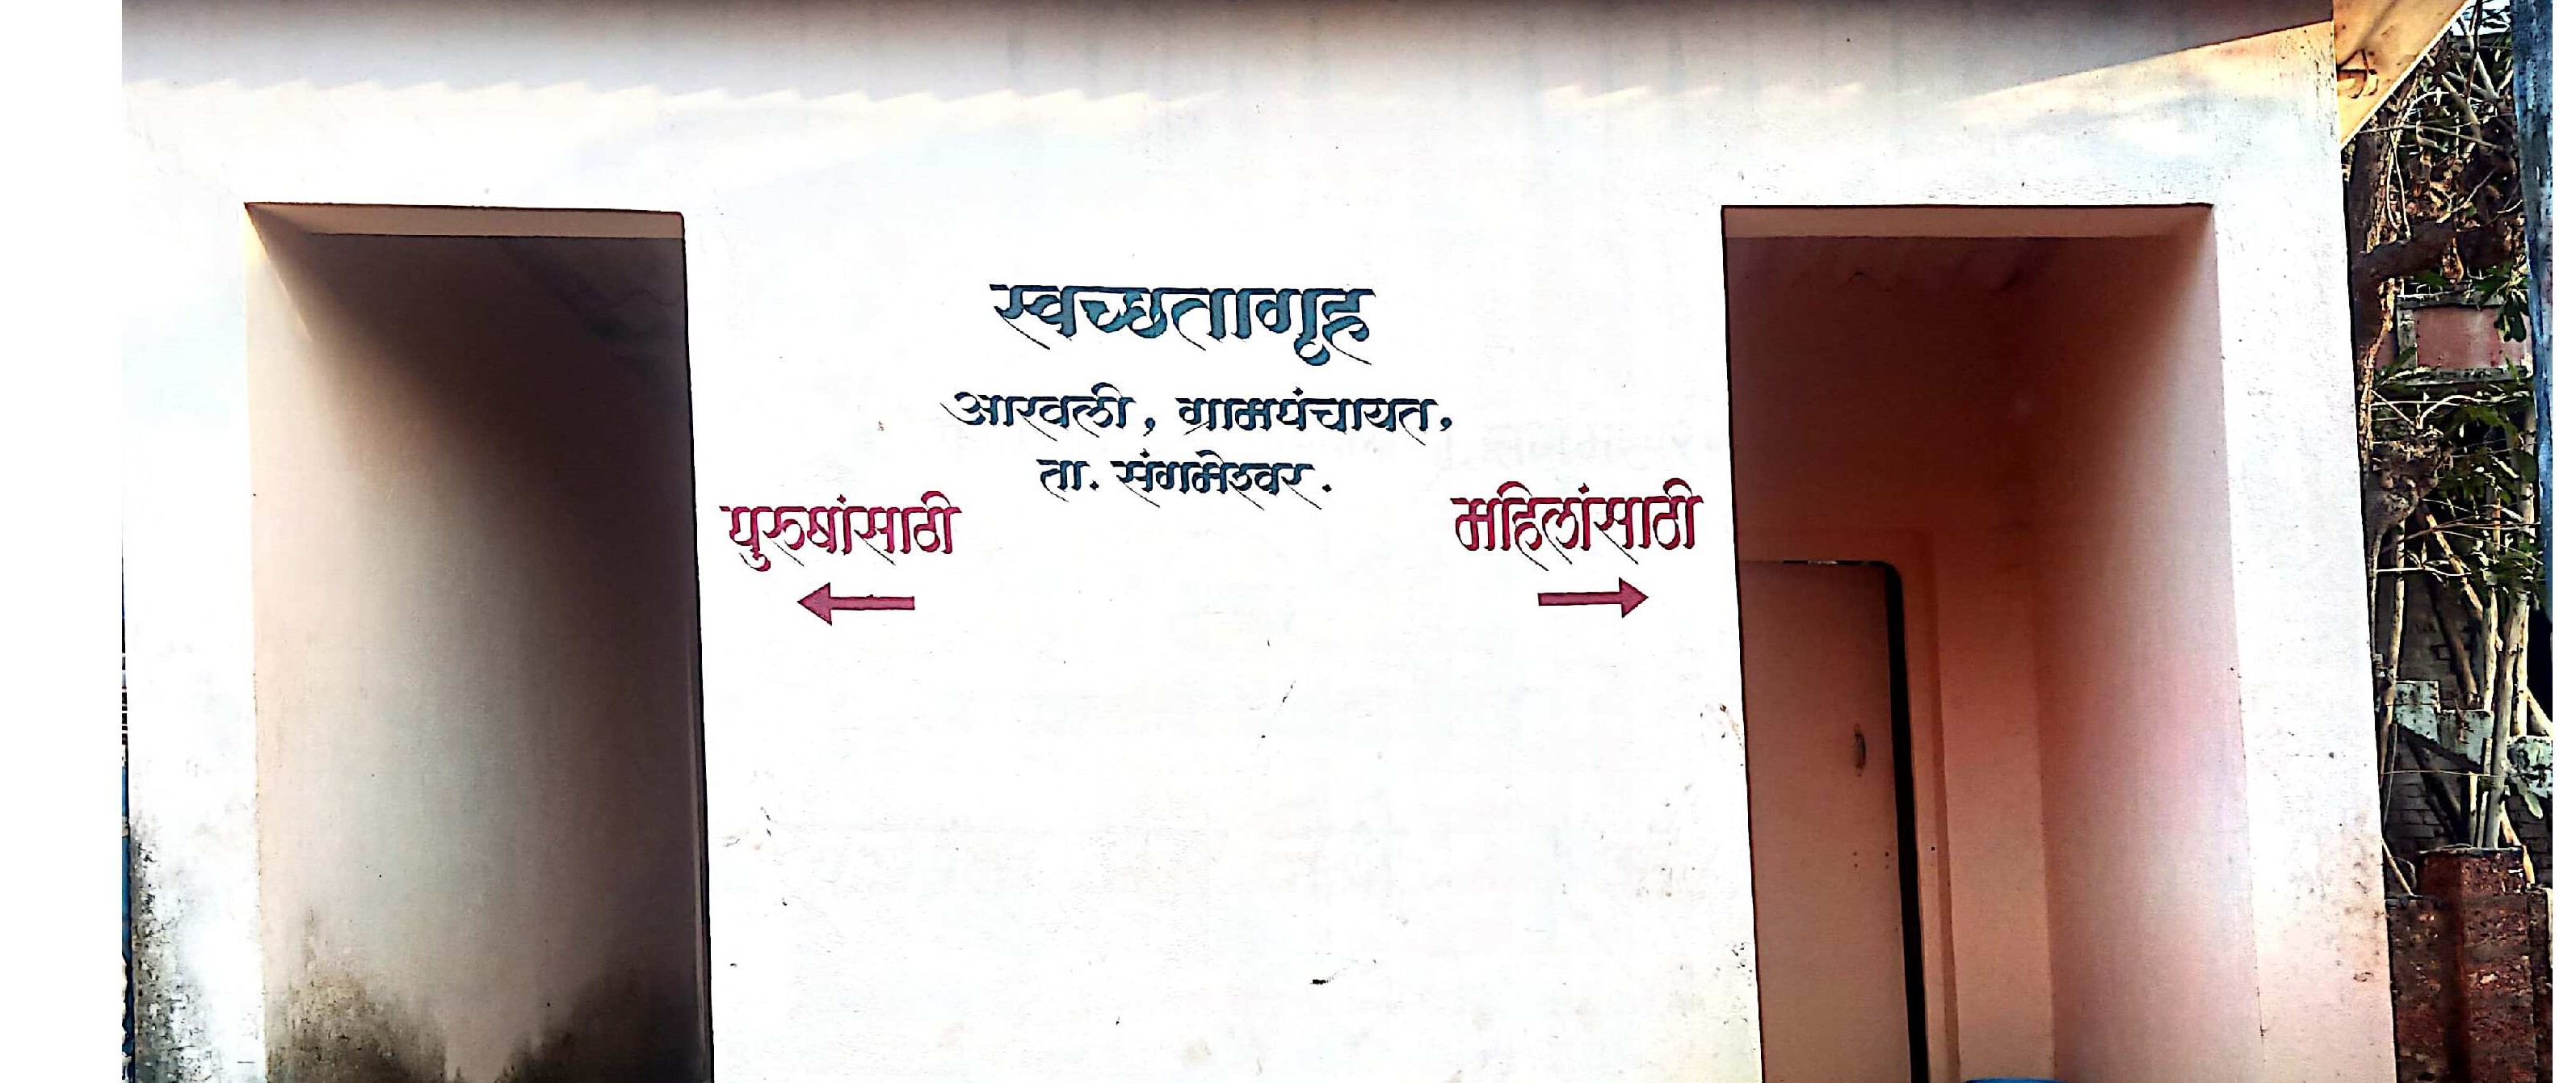 स्वच्छतागृह
आरवली, ग्रामपंचायत,
ता. संगमेश्वर.
पुरुषांसाठी
महिलांसाठी